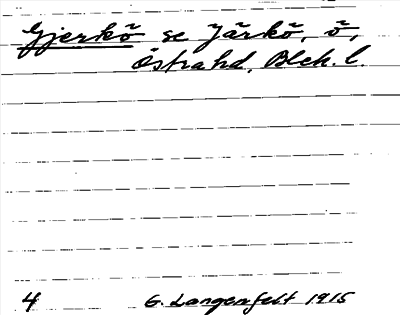 Gjerkö se Järkö, ö,
Östra hd, Blek. l.
4 G. Langenfelt 1915